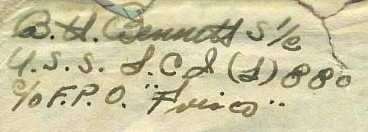 B. H. Bennett S 1/c
U.S.S. L.C.I. (L) 880
c/o F.P.O. "Frisco"